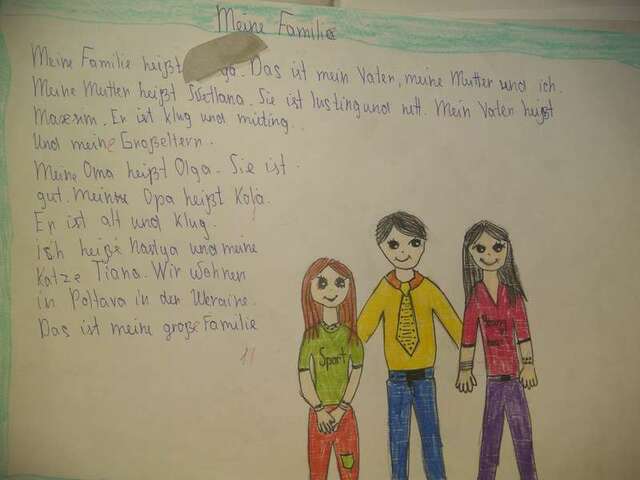 Meine Familie
Meine Familie heißt ga. Das ist mein Vater, meine Mutter und ich.
Meine Mutter heißt Swetlana. Sie ist lusting und nett. Mein Vater heißt
Maxsım. Er ist klug und müting.
Und meine Großeltern.
Meine Oma heißt Olga. Sie ist
gut. Meine Opa heißt Kolja.
Er ist alt und klug.
ich heiße Nastya und meine
Katze Tiana. Wir wohnen
in Poltava in der Ukraine.
Das ist meine große Familie
11
Sport